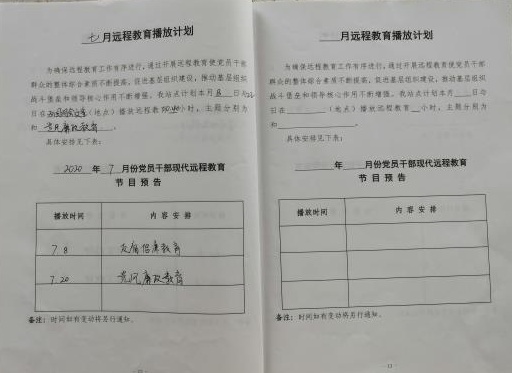 七月远程教育播放计划
为确保远程教育工作有序进行，通过开展远程教育使党员干部
群众的整体综合素质不断提高，促进基层组织建设，推动基层组织
战斗堡垒和领导核心作用不断增强。我站点计划本月 8 日与
日在（地点）播放远程教育小时，主题分别为
和 党风廉政教育。
具体安排见下表：
2020 年 7 月份党员干部现代远程教育
节 目 预 告
播放时间 内 容 安 排
7.8 反腐倡廉教育
7.20 党风廉政教育
备注：时间如有变动将另行通知。
月远程教育播放计划
为确保远程教育工作有序进行，通过开展远程教育使党员干部
群众的整体综合素质不断提高，促进基层组织建设，推动基层组织
战斗堡垒和领导核心作用不断增强。我站点计划本月 日与
日在（地点）播放远程教育 小时，主题分别为
和 。
具体安排见下表：
年 月份党员干部现代远程教育
节 目 预 告
播放时间 内 容 安 排
备注：时间如有变动将另行通知。